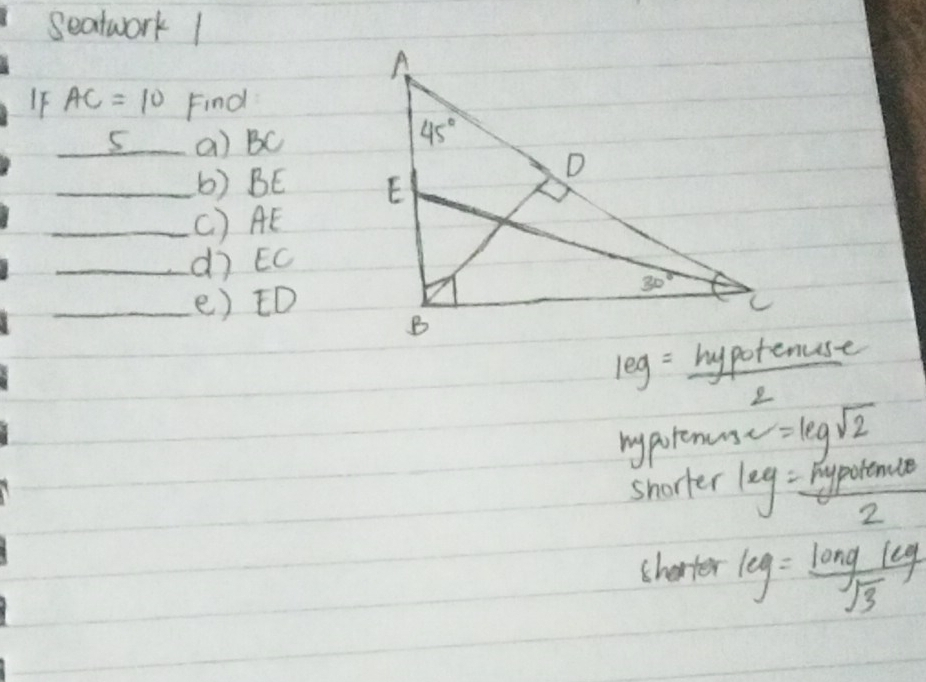 Seatwork 1
IF AC = 10 Find
5 a) BC
b) BE
c) AE
d) EC
e) ED
A
45°
D
E
30°
B
C
leg = hypotenuse
2
hypotenuse = leg √2
shorter leg = hypotenuse
2
shorter leg = long leg
√3